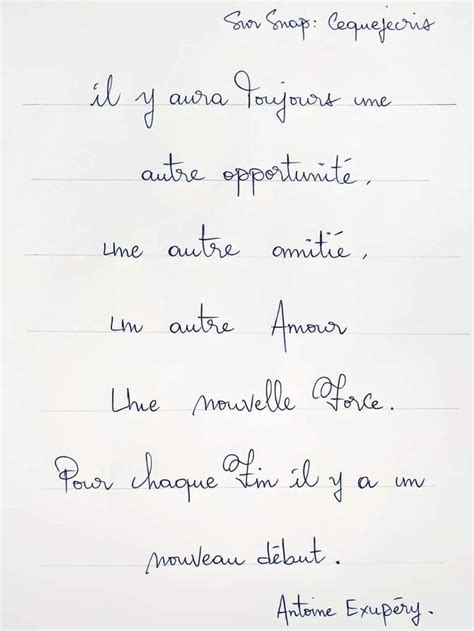 Sur Snap: Cequejecris
il y aura Toujours une
autre opportunité,
une autre amitié,
un autre Amour
Une nouvelle Force.
Pour chaque Fin il y a un
nouveau début.
Antoine Exupéry.